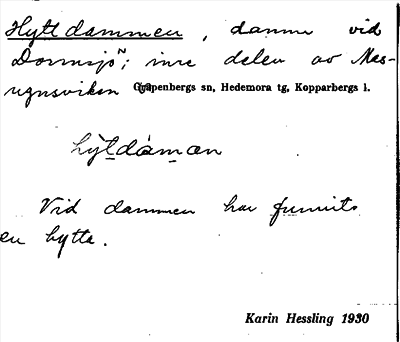 Hyttdammen, damm vid
Dormsjön; inre delen av Mas-
ugnsviken Garpenbergs sn, Hedemora tg, Kopparbergs l.
hỳtdàman
Vid dammen har funnits
en hytta.
Karin Hessling 1930